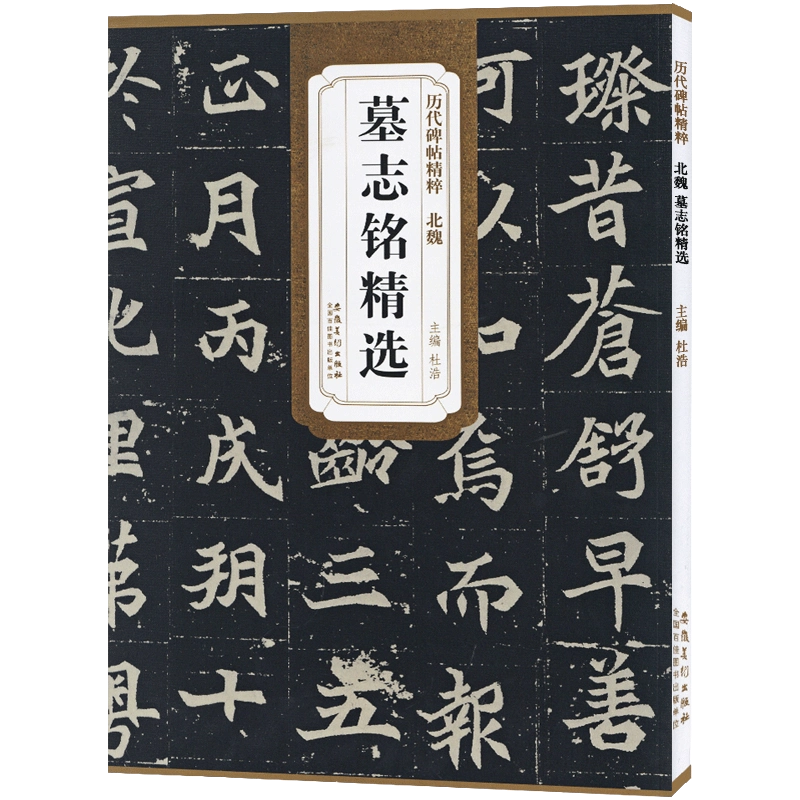 历代碑帖精粹 北魏
墓志铭精选
主编 杜浩
安徽美术出版社
全国百佳图书出版单位
璨昔蒼舒早善
焉而報
齡三五
正月丙戌朔十
於宣化里第粵
历代碑帖精粹 北魏 墓志铭精选 主编 杜浩
安徽美术出版社
全国百佳图书出版单位